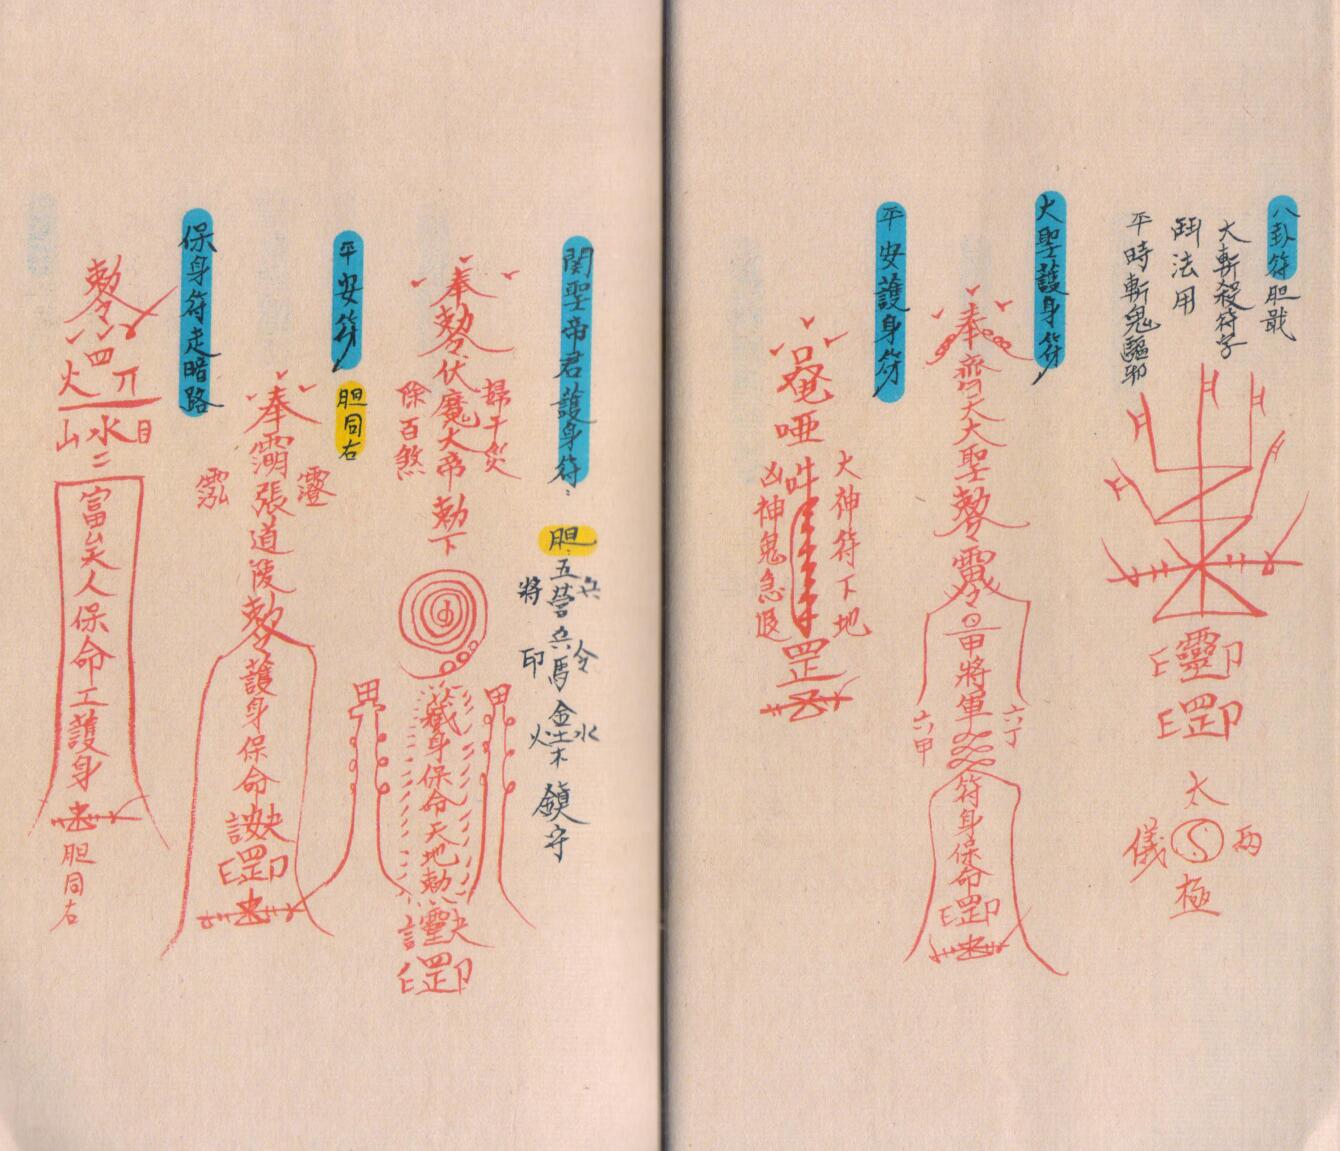 八卦符胆戢
大斬殺符字
鬪法用
平時斬鬼驅邪
靈印
罡印
太
兩
儀
極
大聖護身符
奉齊天大聖勅令
甲將軍
六丁
六甲
符身保命罡印
平安護身符
唵啞吽
大神符下地
凶神鬼急退
罡
関聖帝君護身符
胆:五營兵馬
兵
將
令
印
金土木
水
火
鎮守
奉勅令伏魔大帝
歸千災
除百煞
勅下
藏身保命天地勅
罡印
平安符
胆同右
奉
張道陵勅令
護身保命
罡印
保身符走暗路
勅令
四
火
山水目
二
富美人保命工護身
胆同右